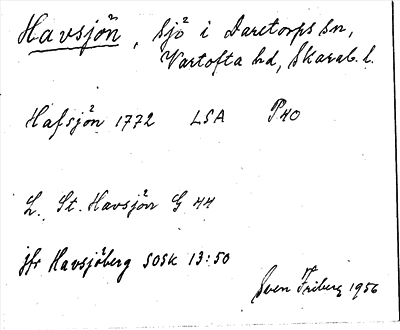 Havsjön, sjö i Daretorps sn,
Vartofta hd, Skarab. l.
Hafsjön 1772 LSA P40
L. St. Havsjön G 44
jfr Havsjöberg SOSk 13:50
Sven Friberg 1956